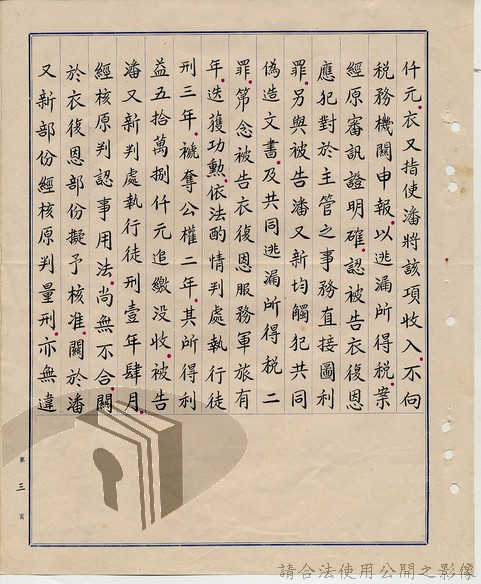 仟元。衣又指使潘將該項收入不向
稅務機關申報。以逃漏所得稅。案
經原審訊證明確。認被告衣復恩
應犯對於主管之事務直接圖利
罪。另與被告潘又新均觸犯共同
偽造文書。及共同逃漏所得稅二
罪。第念被告衣復恩服務軍旅有
年。迭獲功勲。依法酌情判處執行徒
刑三年。褫奪公權二年。其所得利
益五拾萬捌仟元追繳沒收。被告
潘又新判處執行徒刑壹年肆月。
經核原判認事用法。尚無不合。關
於衣復恩部份擬予核准。關於潘
又新部份經核原判量刑。亦無違
第三頁
請合法使用公開之影像